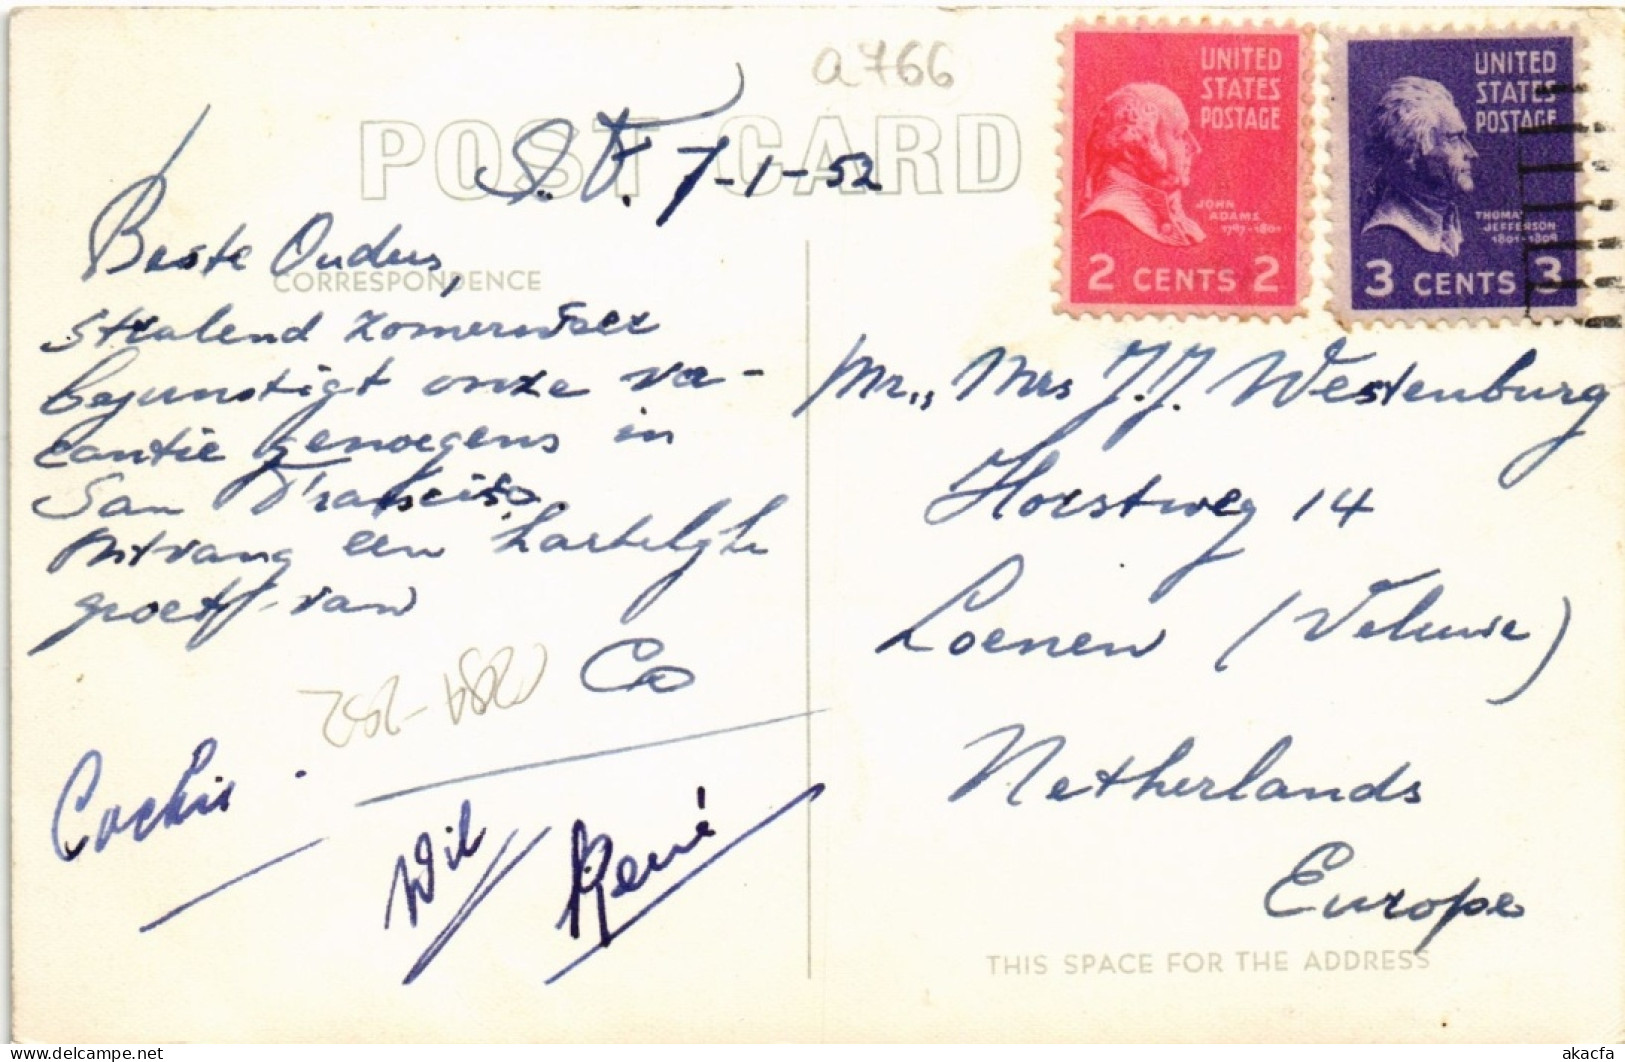 a766
POST CARD
S.F. 7-1-52
Beste Ouders,
CORRESPONDENCE
Stralend zomerweer
begunstigt onze va-
cantie genoegens in
San Francisco
Ontvang een hartelijke
groet van
Co
Wil
René
UNITED
STATES
POSTAGE
JOHN
ADAMS
1797-1801
2 CENTS 2
UNITED
STATES
POSTAGE
THOMAS
JEFFERSON
1801-1809
3 CENTS 3
Mr., Mrs J.J. Westenburg
Horstweg 14
Loenen (Veluwe)
Netherlands
Europe
THIS SPACE FOR THE ADDRESS
www.delcampe.net
akacfa